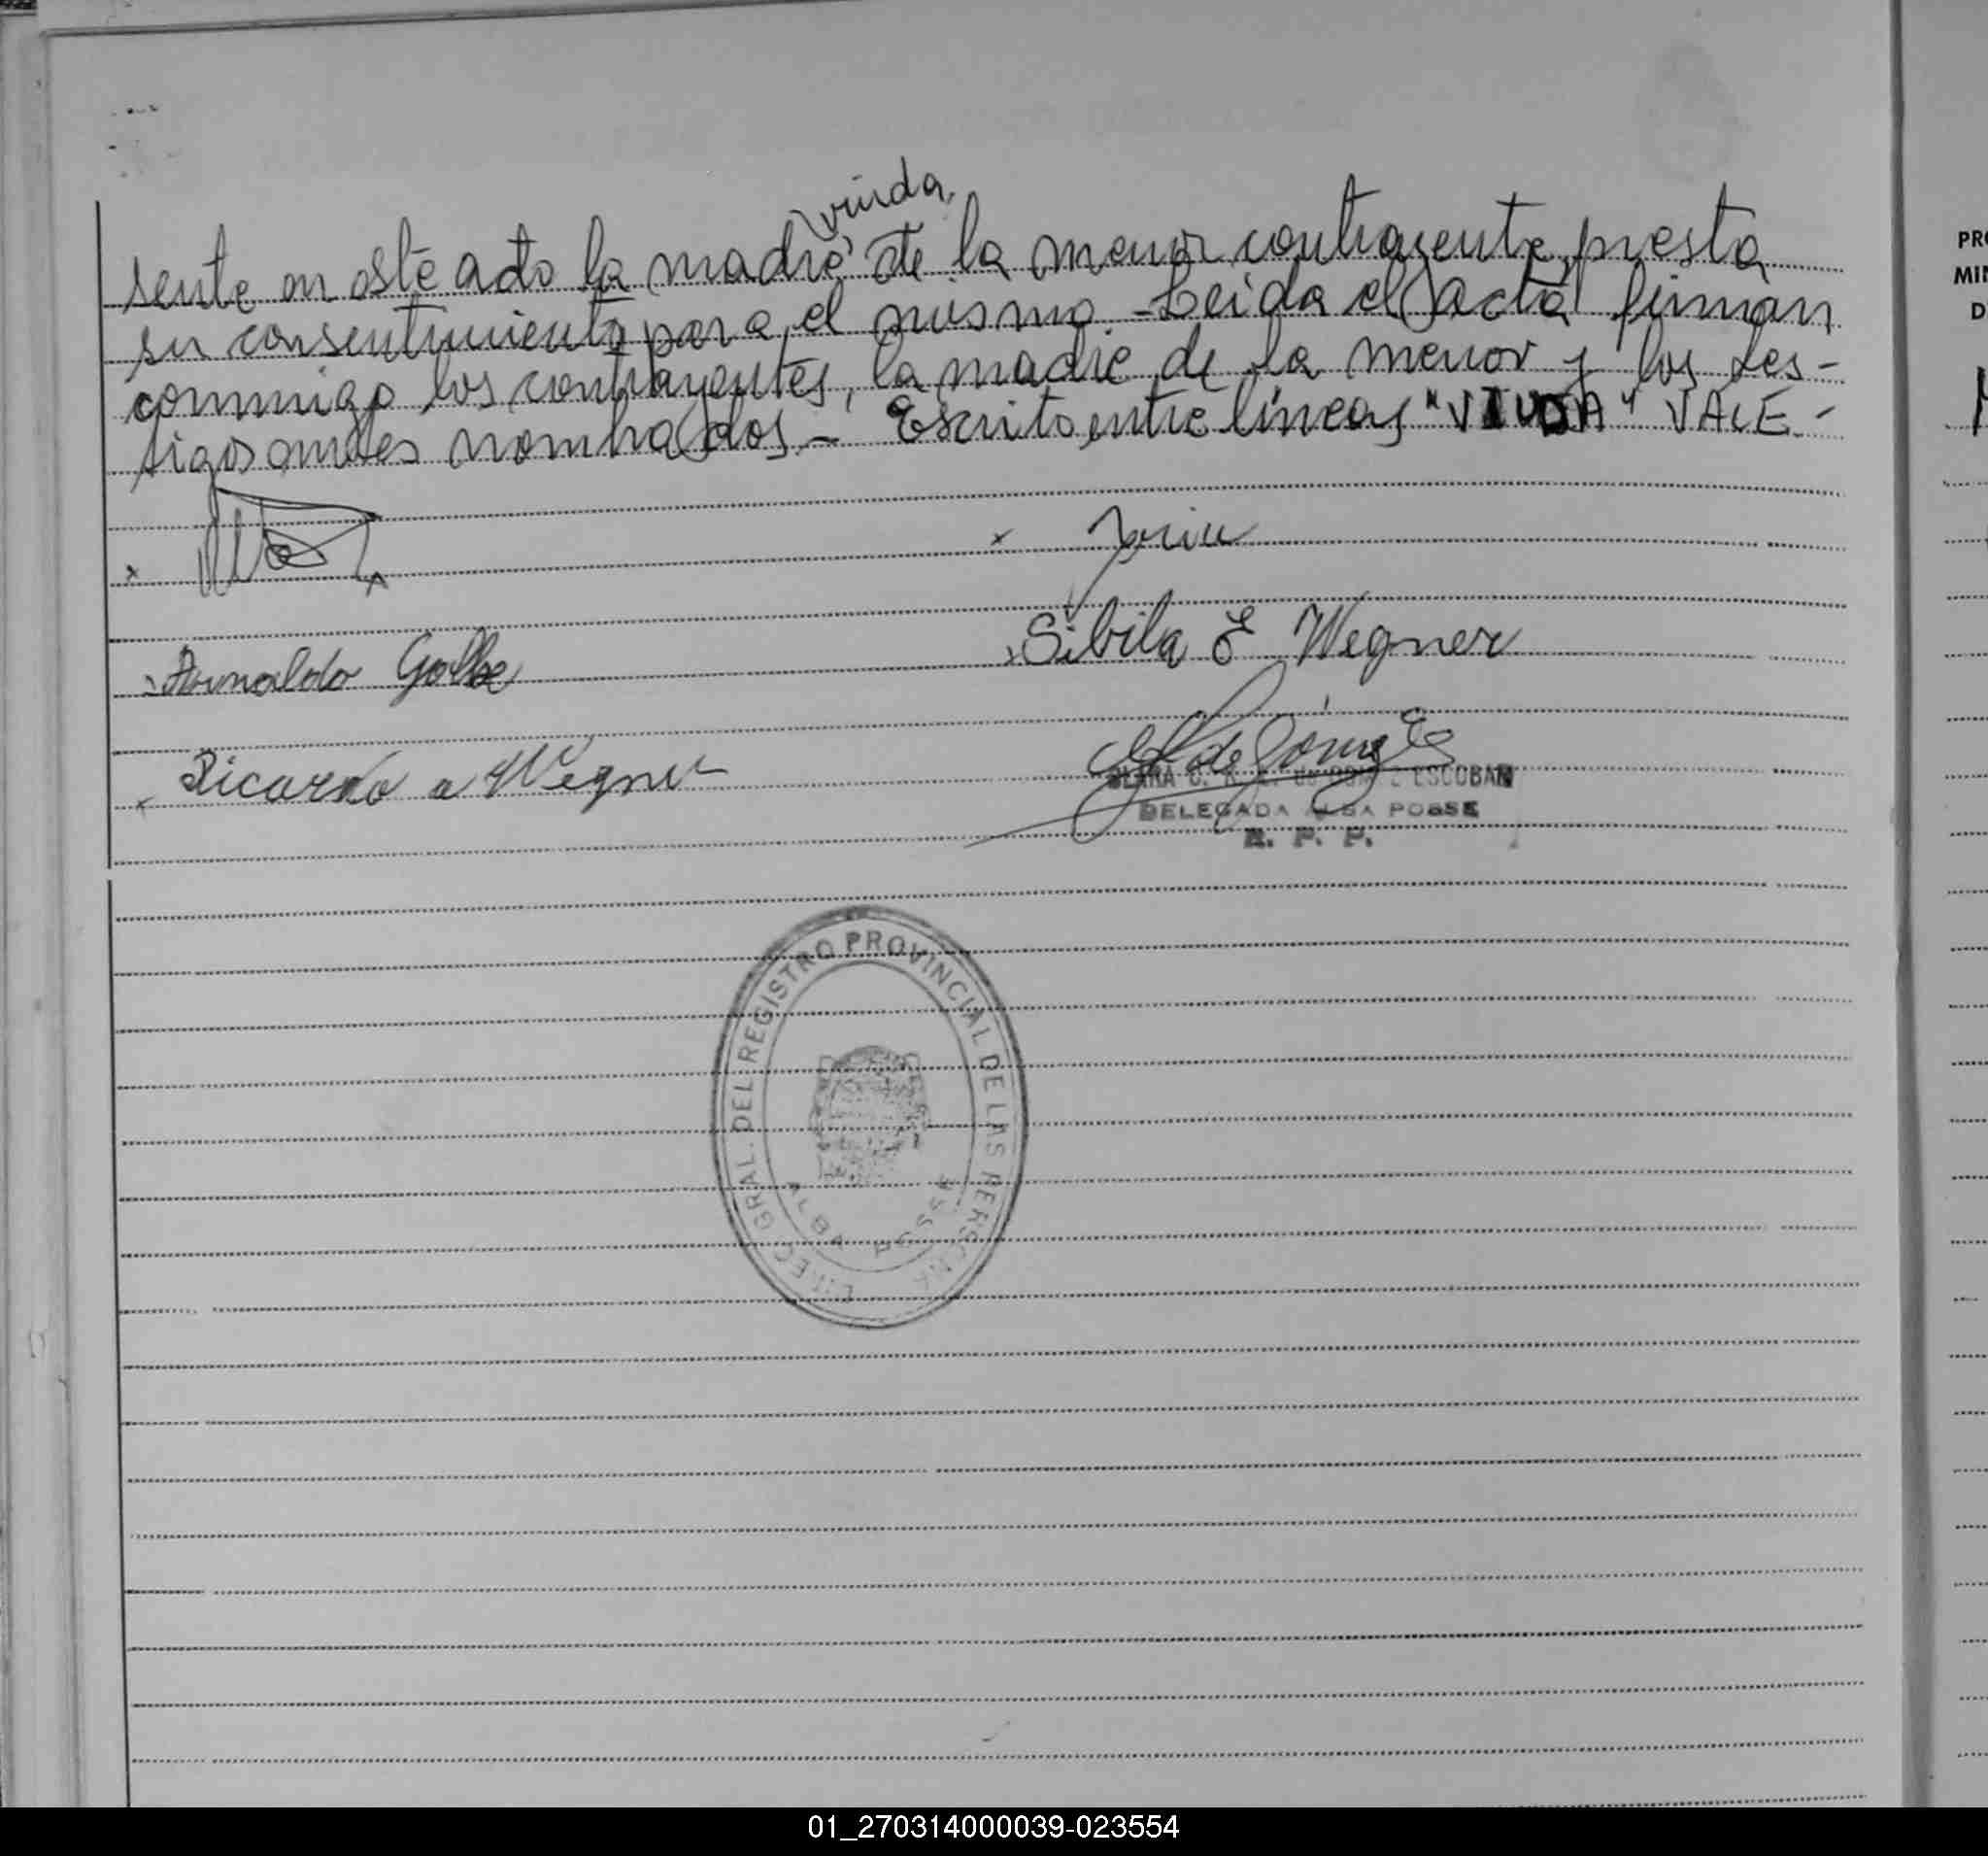 viuda,
sente en este acto la madre de la menor contrayente, presta
su consentimiento para el mismo.- Leida el acta firman
conmigo los contrayentes, la madre de la menor y los tes-
tigos antes nombrados.- Escrito entre líneas "VIUDA" VALE-
x
x
Sibila E Wegner
Arnaldo
Ricardo a Wegner
de Gómez E
CLARA ESCOBAR
DELEGADA ALBA POSSE
R. P. P.
DIREC. GRAL. DEL REGISTRO PROVINCIAL DE LAS PERSONAS
ALBA POSSE
PR
MIN
D
01_270314000039-023554